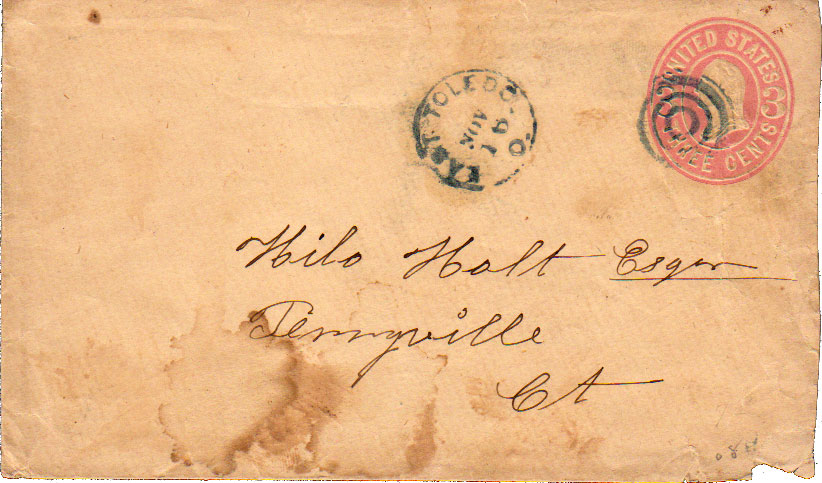 UNITED STATES
THREE CENTS
EAST TOLEDO O.
NOV
16
Hilo Holt Esqur
Terryville
Ct